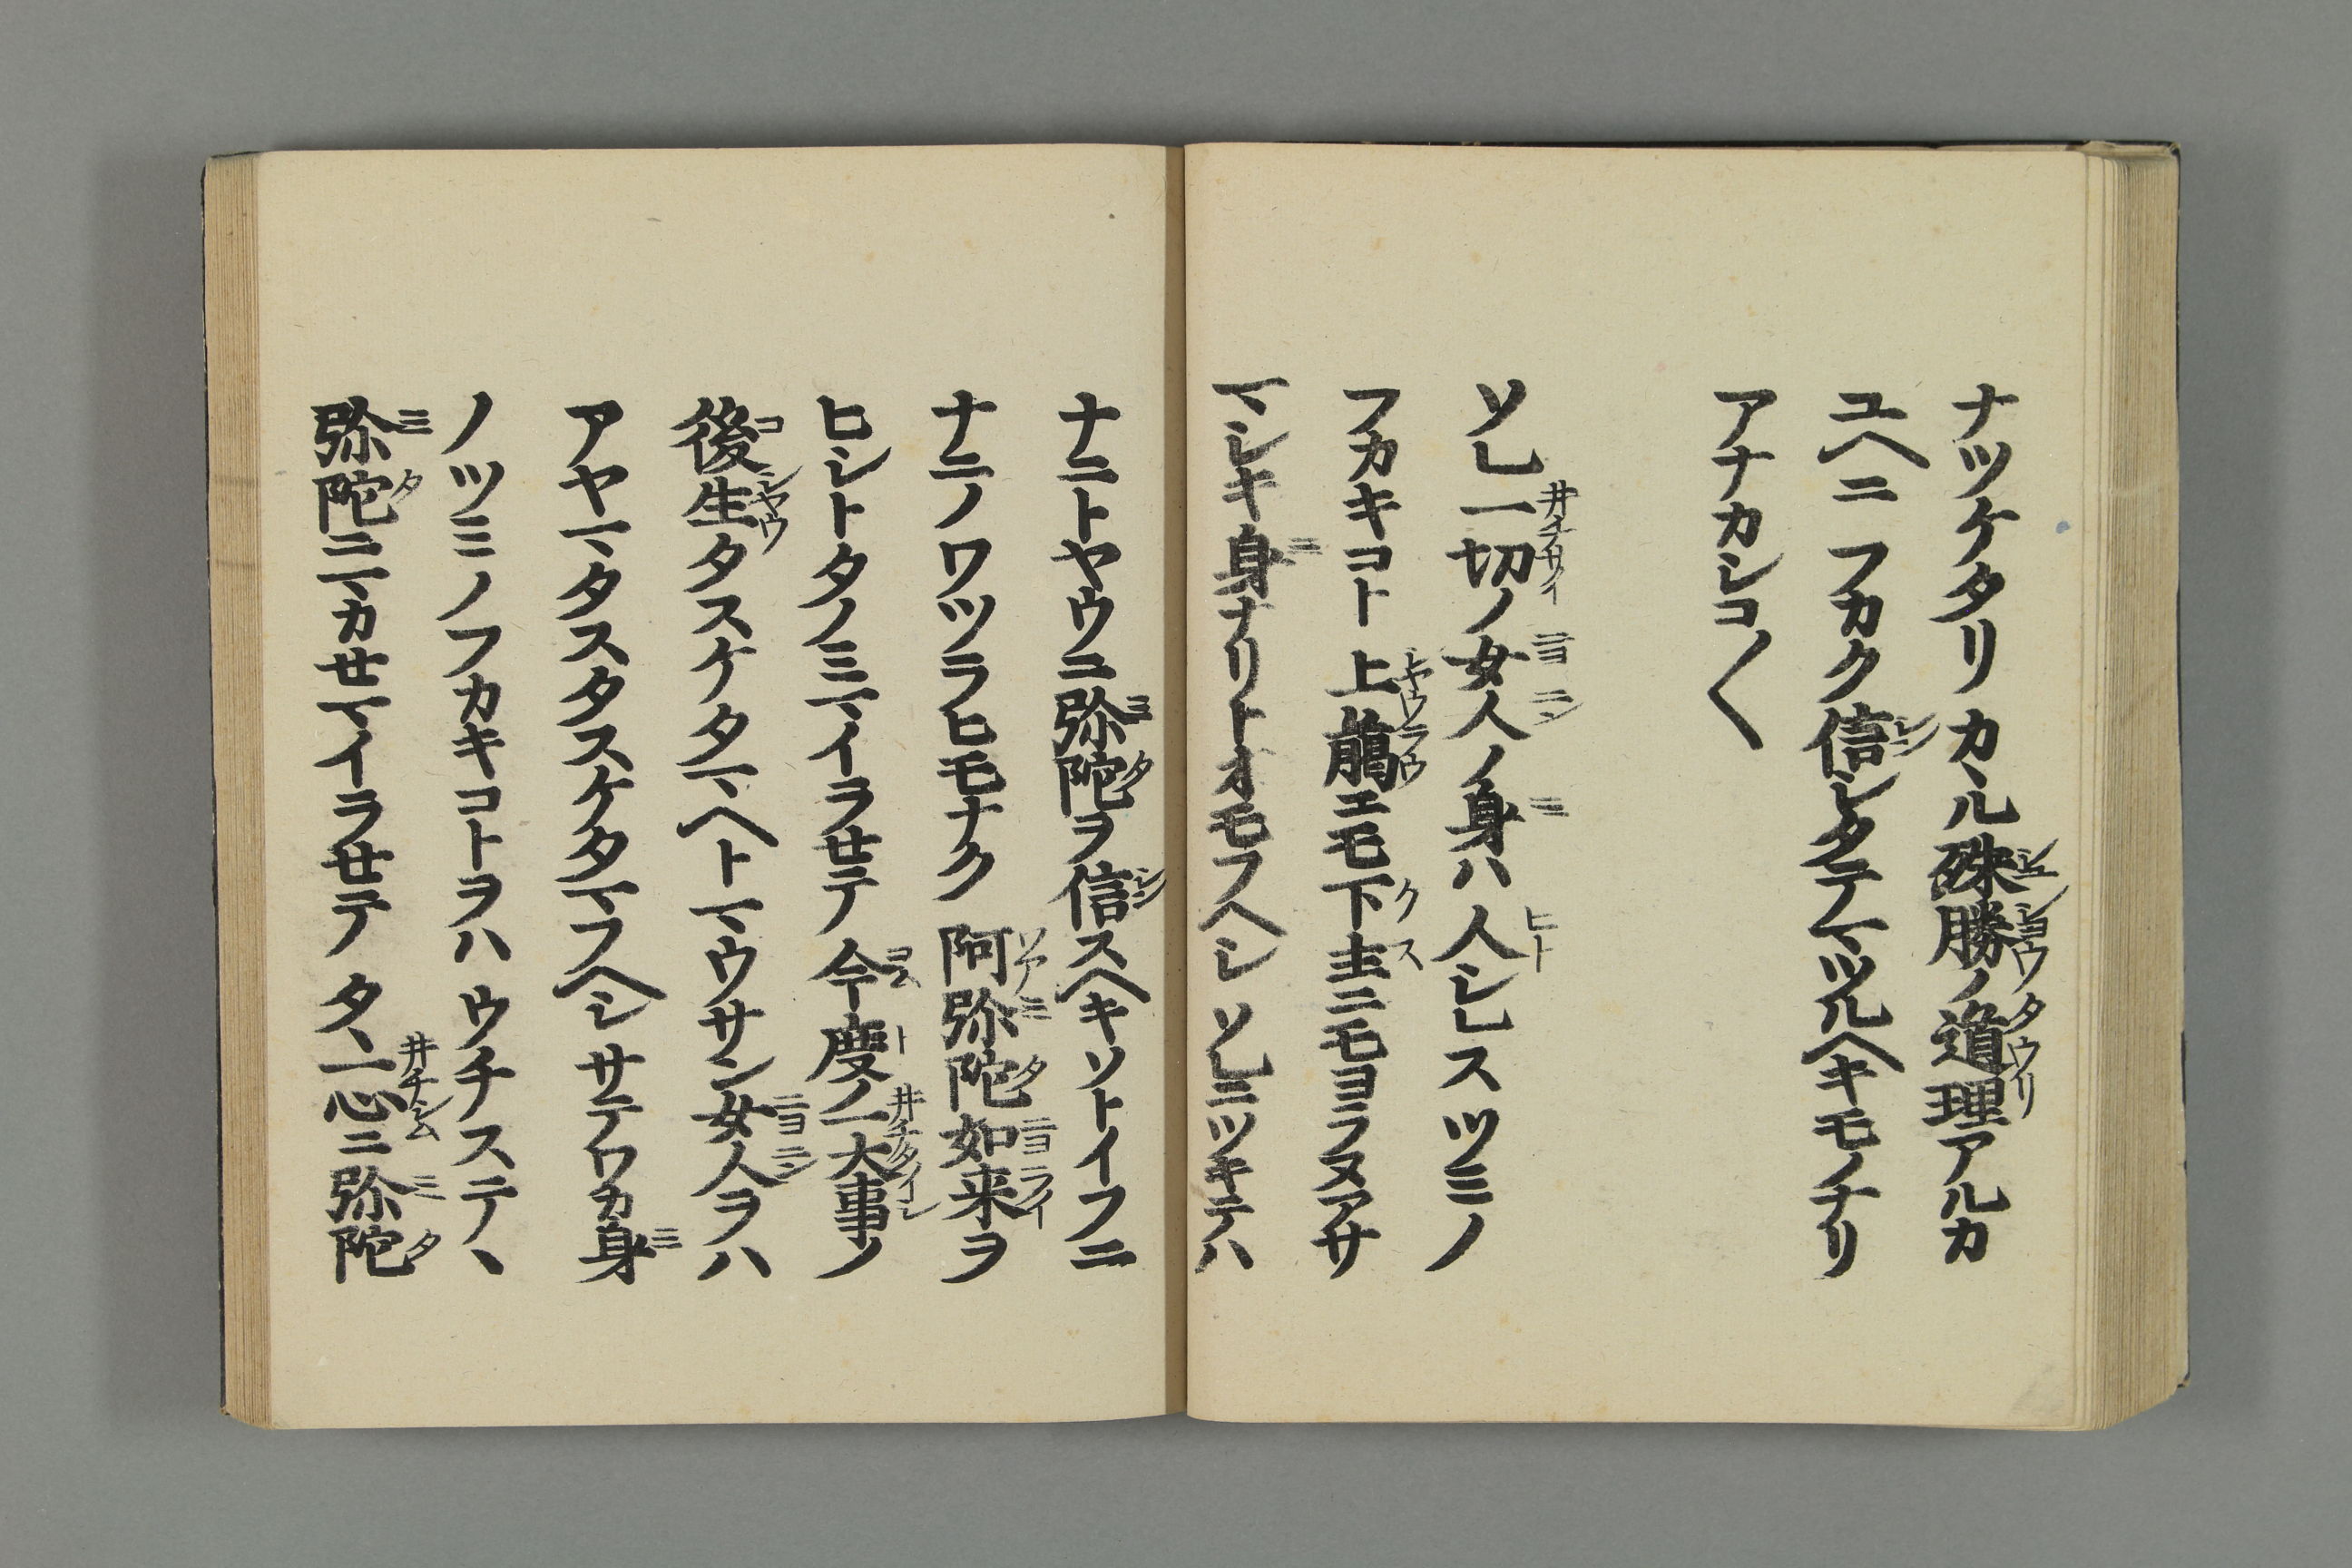 ナツケタリカヽル殊勝ノ道理アルカ
ユヘニフカク信シタテマツルヘキモノナリ
アナカシコ〳〵
ソレ一切ノ女人ノ身ハ人シレスツミノ
フカキコト上﨟ニモ下主ニモヨラヌアサ
マシキ身ナリトオモフヘシソレニツキテハ
ナニトヤウニ弥陀ヲ信スヘキソトイフニ
ナニノワツラヒモナク阿弥陀如来ヲ
ヒシトタノミマイラセテ今度ノ一大事ノ
後生タスケタマヘトマウサン女人ヲハ
アヤマタスタスケタマフヘシサテワカ身
ノツミノフカキコトヲハウチステヽ
弥陀ニマカセマイラセテタヽ一心ニ弥陀